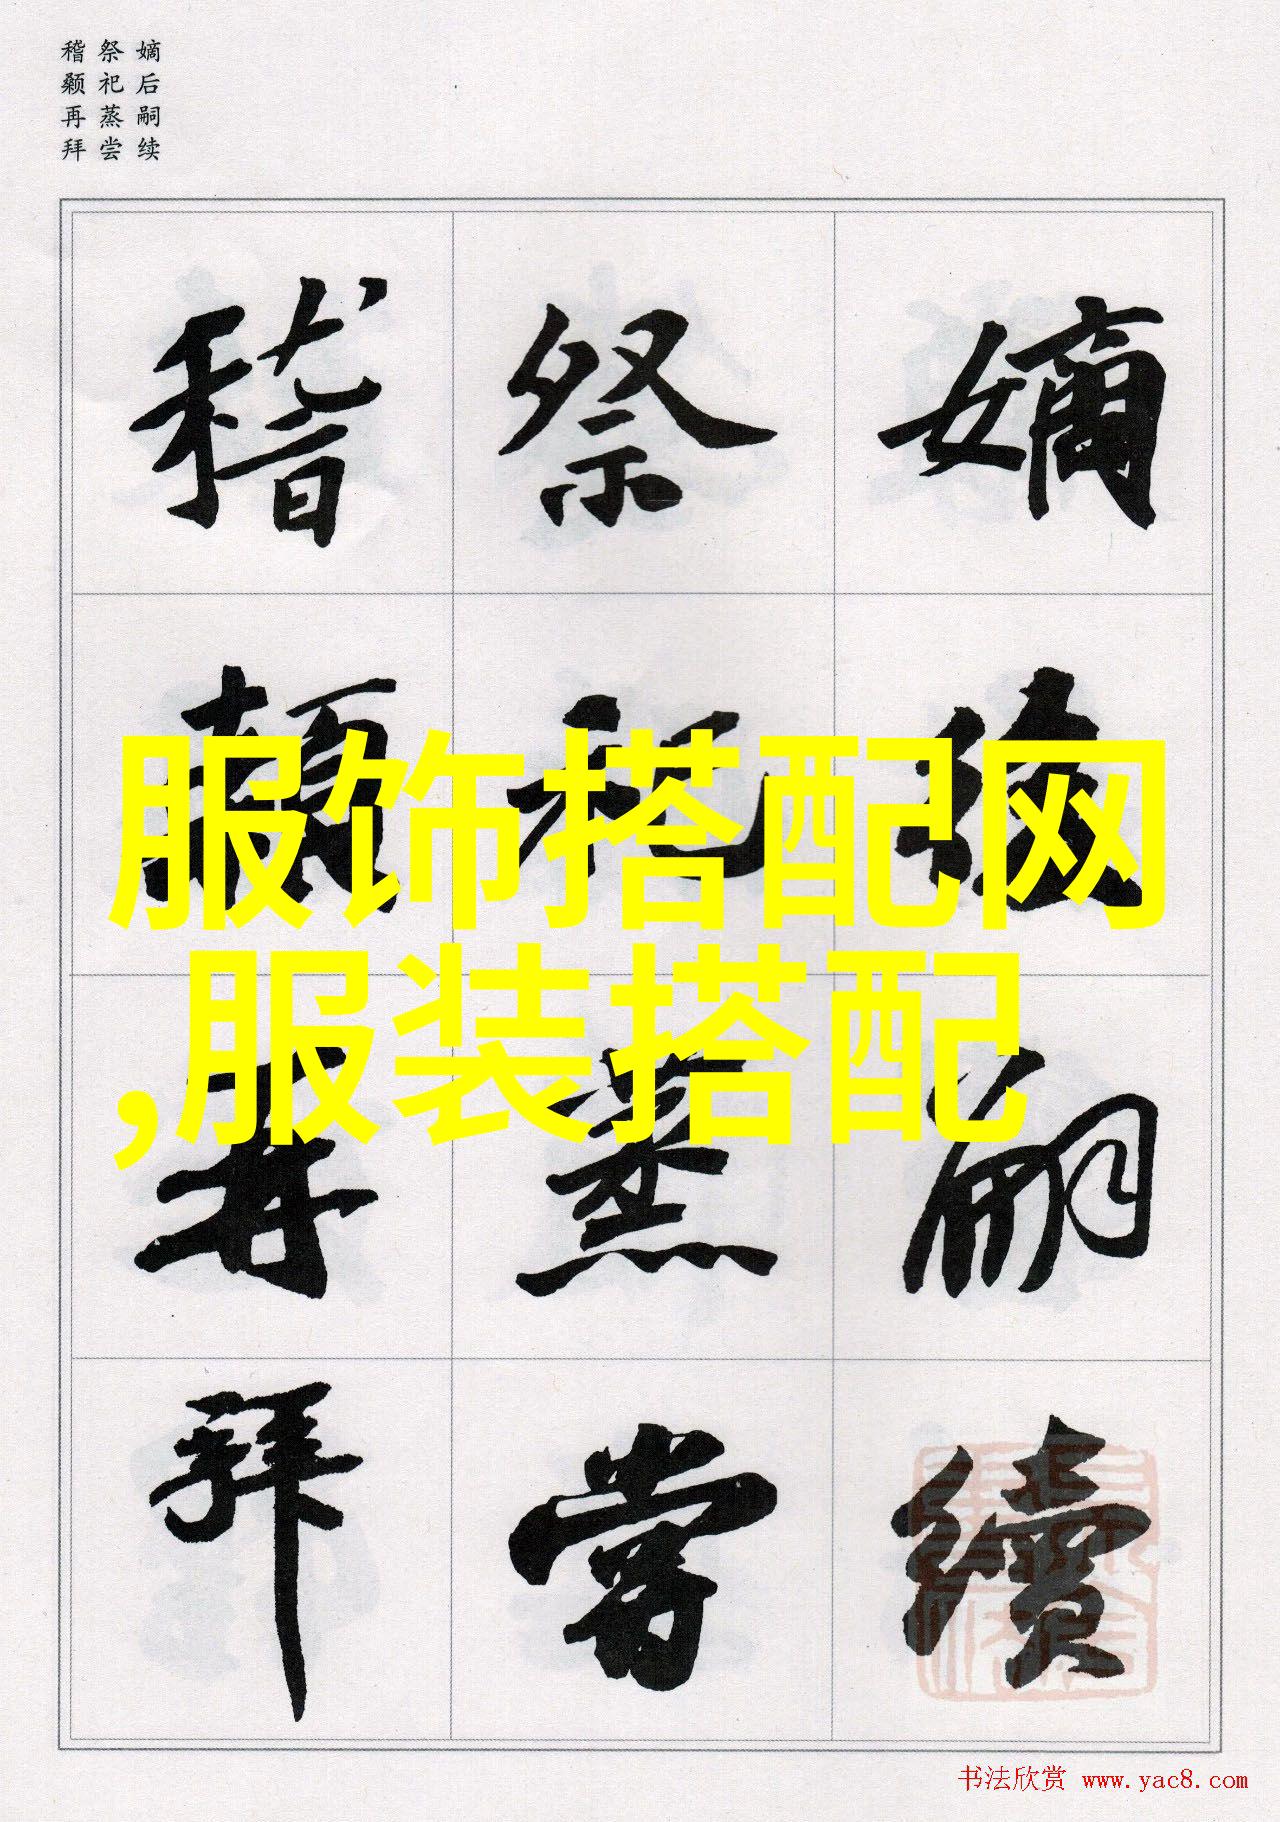 嫡后嗣续
祭祀蒸尝
稽颡再拜
嫡後嗣續
祭祀蒸嘗
稽顙再拜
服饰搭配网
,服装搭配
书法欣赏 www.yac8.com